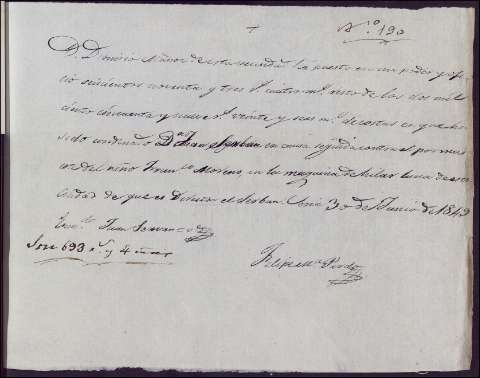 Nº 190
D. Dionisio Muñoz de esta vecindad ha puesto en mi poder y ofi
cio seiscientos noventa y tres rs. cuatro ms. resto de los dos mil
ciento cincuenta y nueve rs. veinte y seis ms. de costas en que ha
sido condenado Dn Juan Serban en causa seguida contra el por muer
te del niño Franco Moreno, en la maquina de hilar lana de esta
ciudad de que es Director el Serban. Soria 30 de Junio de 1849
Juan
Son 693 rs. y 4